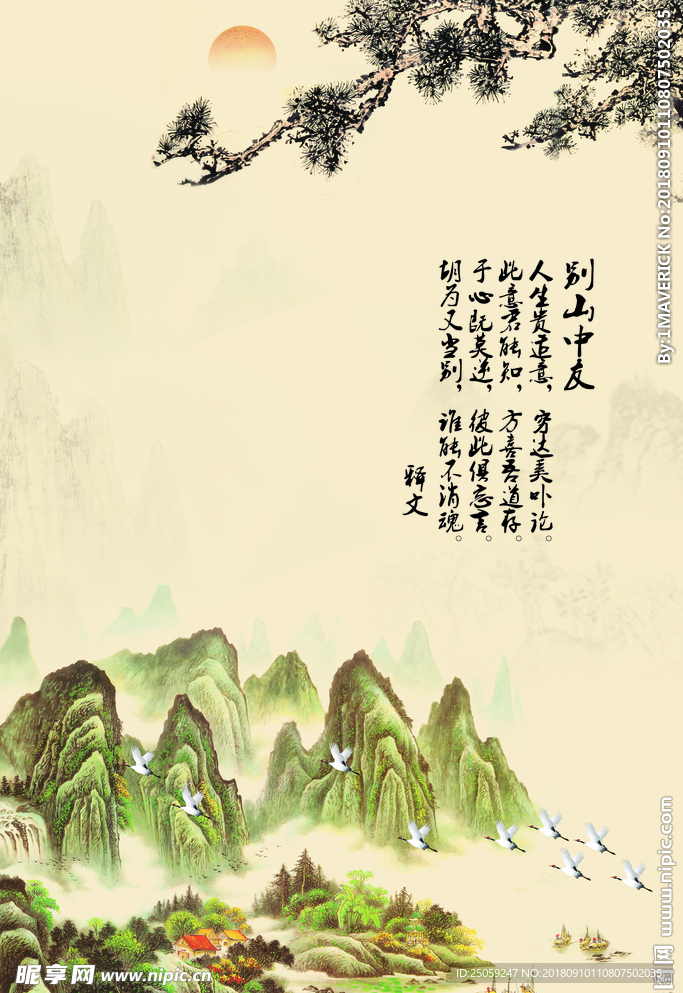 别山中友
人生贵适意，穷达奚足论。
此意君能知，方喜吾道存。
于心既莫逆，彼此俱忘言。
胡为又当别，谁能不消魂。
释文
By:1MAVERICK No:20180910110807502035
www.nipic.com
昵图网
昵享网 www.nipic.cn
ID:25059247 NO:20180910110807502035